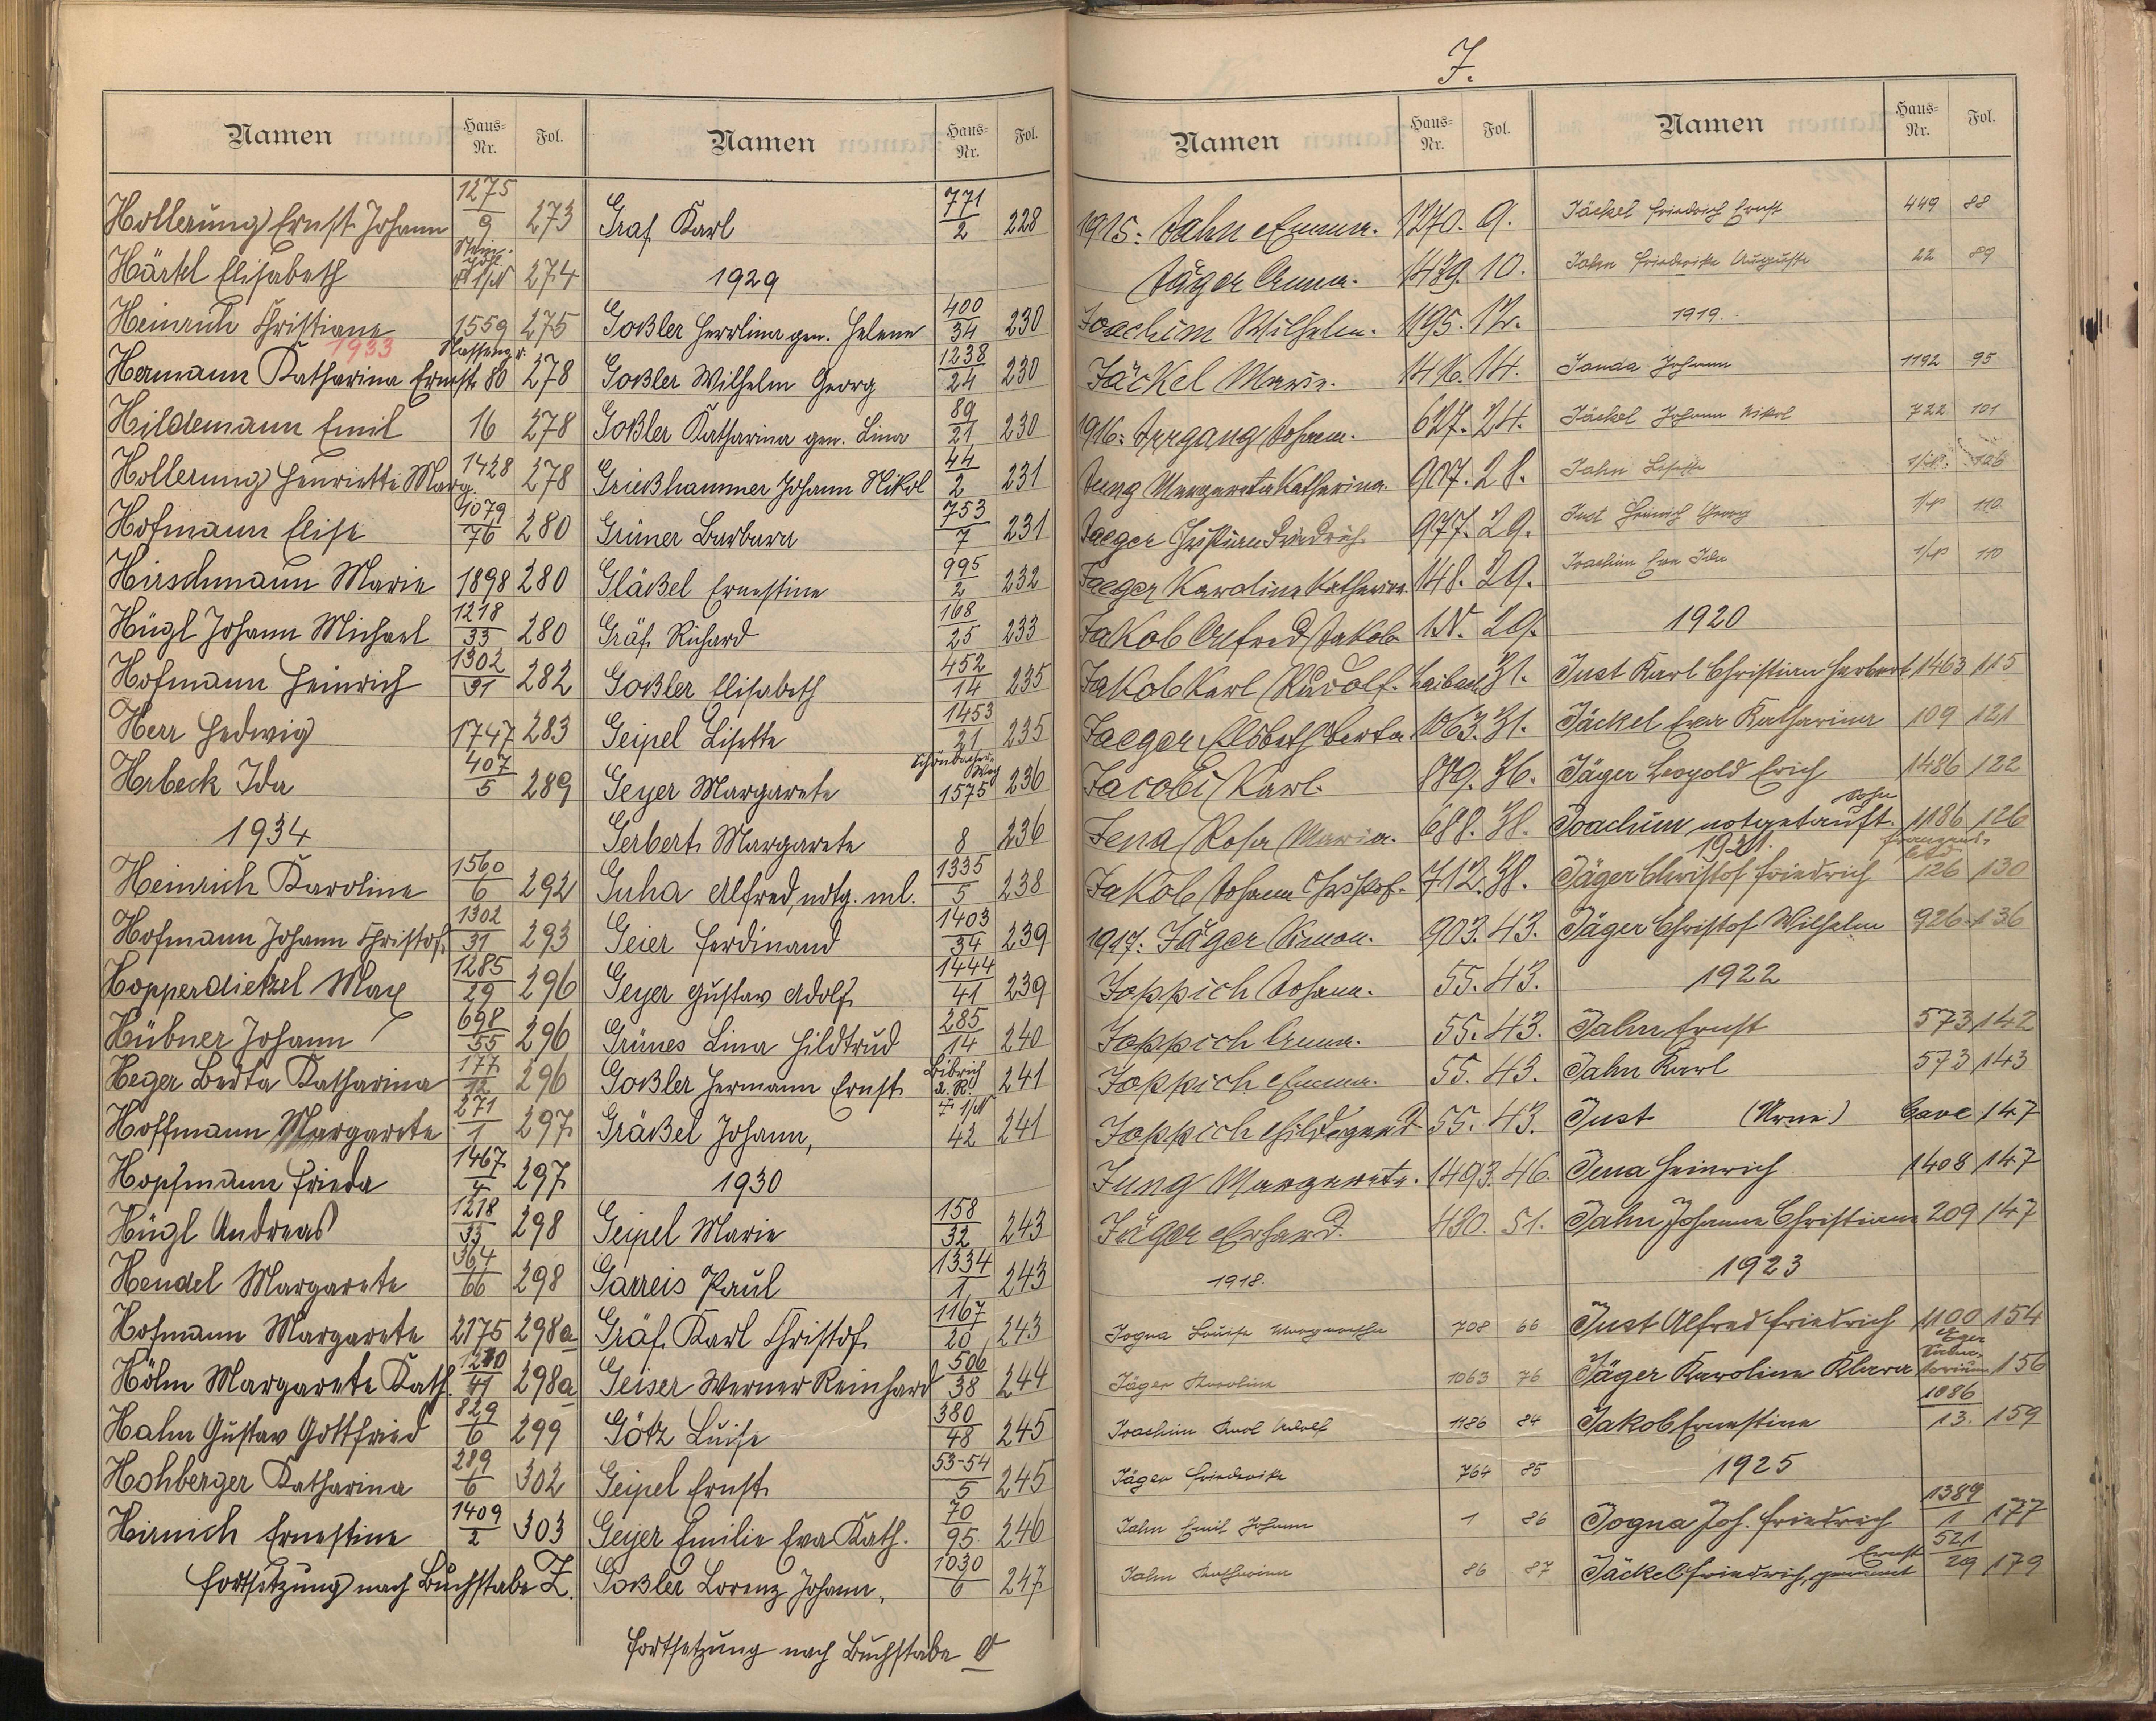 J.
Namen Haus-Nr. Fol.
Hollerung Ernst Johann 1275/9 273
Härtel Elisabeth 1/N 274
Heinrich Christiane 1559 275
1933
Hermann Katharina Ernest. 80 278
Hildemann Emil 16 278
Hollerung Henriette Marg. 1428 278
Hofmann Elise 1079/76 280
Hirschmann Marie 1898 280
Hügl Johann Michael 1218/33 280
Hofmann Heinrich 1302/31 282
Herr Hedwig 1747 283
Hrbeck Ida 407/5 289
1934
Heinrich Karoline 1560/6 292
Hofmann Johann Christof. 1302/31 293
Hopperdietzel Max 1285/29 296
Hübner Johann 698/55 296
Heger Berta Katharina 177/12 296
Hoffmann Margarete 271/1 297
Hopfmann Frieda 1467/4 297
Hügl Andreas 1218/33 298
Hendel Margarete 364/66 298
Hofmann Margarete 2175 298a
Hölm Margarete Kath. 41 298a
Hahn Gustav Gottfried 829/6 299
Hohberger Katharina 289/6 302
Hirnich Ernestine 1409/2 303
Fortsetzung nach Buchstabe Z.
Namen Haus-Nr. Fol.
Graf Karl 771/2 228
1929
Goßler Herrlina gen. Helene 400/34 230
Goßler Wilhelm Georg 1238/24 230
Goßler Katharina gen. Lina 89/21 230
Grießhammer Johann Nikol 44/2 231
Grüner Barbara 753/7 231
Gläßel Ernestine 995/2 232
Gräf Richard 168/25 233
Goßler Elisabeth 452/14 235
Geipel Lisette 1453/21 235
Geyer Margarete Schönbacher Weg 1575 236
Gerbert Margarete 8 236
Guha Alfred, notg. ml. 1335/5 238
Geier Ferdinand 1403/34 239
Geyer Gustav Adolf 1444/41 239
Grünes Lina Hildtrud 285/14 240
Goßler Hermann Ernst Bibrich a. R. 241
Gräßel Johann, 1/N 42 241
1930
Geipel Marie 158/32 243
Garreis Paul 1334/1 243
Gräf Karl Christof 1167/20 243
Geiser Werner Reinhard 506/38 244
Götz Luise 380/48 245
Geipel Ernst 53-54/5 245
Geyer Emilie Eva Kath. 70/95 246
Goßler Lorenz Johann, 1030/6 247
Fortsetzung nach Buchstabe O
Namen Haus-Nr. Fol.
1915: Jahn Emma. 1270. 9.
Jäger Anna. 1439. 10.
Joachim Wilhelm. 1195. 12.
Jäckel Marie. 1416. 14.
1916: Irrgang Johann. 627. 24.
Jung Margareta Katharina. 907. 28.
Jaeger Christian Friedrich. 977. 29.
Jaeger Karoline Katharina. 148. 29.
Jakob Alfred Jakob 1N. 29.
Jakob Karl Rudolf. Laibach 31.
Jaeger Elsbeth Berta 1063. 31.
Jacobi Karl. 889. 36.
Jena Rosa Maria. 688. 38.
Jakob Johann Christof. 712. 38.
1917: Jäger Simon. 903. 43.
Joppich Johann. 55. 43.
Joppich Anna. 55. 43.
Joppich Emma. 55. 43.
Joppich Hildegard 55. 43.
Jung Margarete. 1493. 46.
Jäger Erhard. 480. 51.
1918.
Jogna Louise Margarethe 708 66
Jäger Karoline 1063 76
Joachim Karl Adolf 1186 84
Jäger Friederike 764 85
Jahn Emil Johann 1 86
Jahn Katharina 86 87
Namen Haus-Nr. Fol.
Jäckel Friedrich Ernst 449 88
Jahn Friederike Auguste 22 89
1919.
Janda Johann 1192 95
Jäckel Johann Nikol 722 101
Jahn Lisette 106
Just Heinrich Georg 110
Joachim Eva Ida 110
1920
Just Karl Christian Herbert 1463 115
Jäckel Eva Katharina 109 121
Jäger Leopold Erich 1486 122
Joachim notgetauft. Sohn 1186 126
1921.
Jäger Christof Friedrich 126 130
Jäger Christof Wilhelm 926 136
1922
Jahn Ernst 573 142
Jahn Karl 573 143
Just (Urne) Cave 147
Jena Heinrich 1408 147
Jahn Johanna Christiana 209 147
1923
Just Alfred Friedrich 1100 154
Jäger Karoline Klara 156
Jakob Ernestine 1086/13. 159
1925
Jogna Joh. Friedrich 1389/1 177
Jäckel Friedrich, genannt Ernst 521/29 179